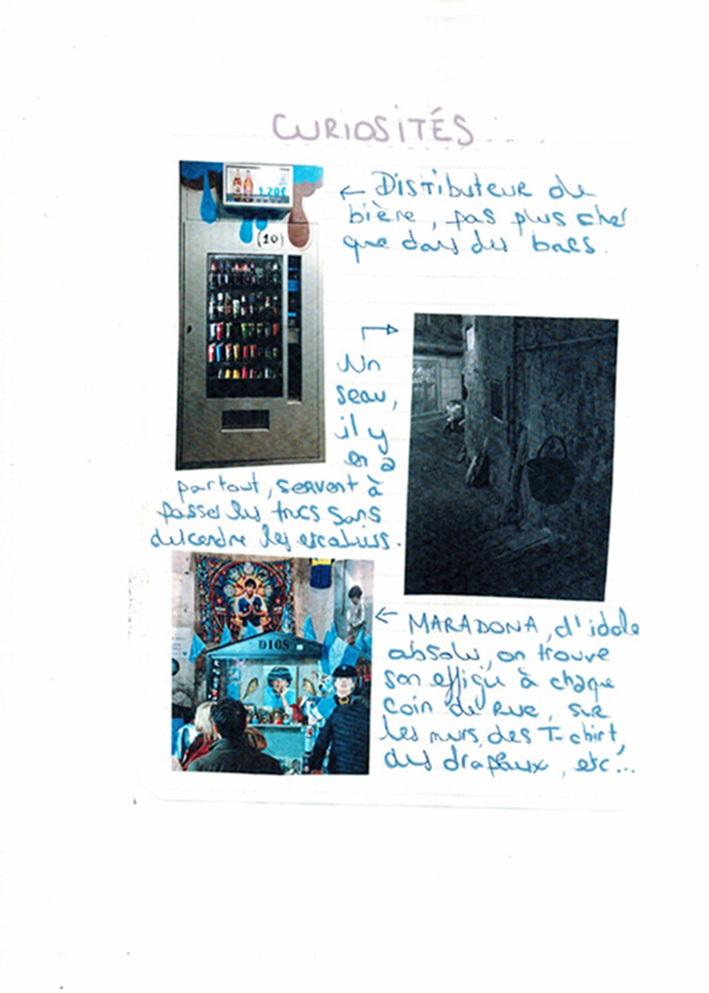 CURIOSITÉS
1.20€
(10)
← DISTIBUTEUR de
bière, pas plus cher
que dans des bars.
Un
seau,
il y
en a
partout, servent à
passer les trucs sans
descendre les escaliers.
DIOS
← MARADONA, d'idole
absolu, on trouve
son effigie à chaque
coin de rue, sur
les murs, des T-chirt,
des drapeaux, etc...